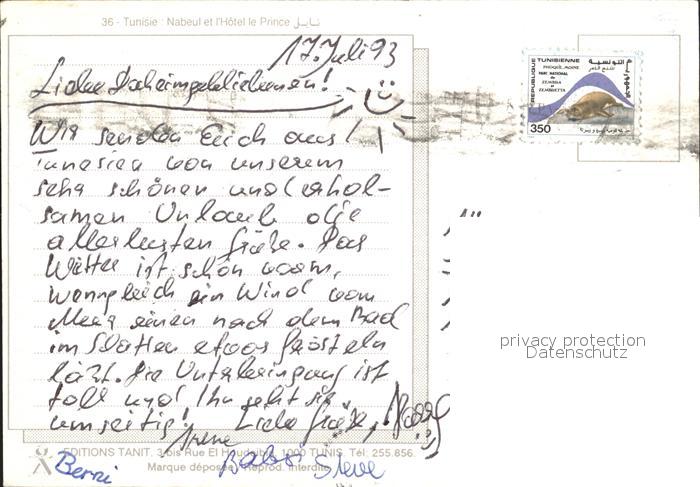 36 - Tunisie : Nabeul et l'Hôtel le Prince نابل
17. Juli 93
Liebe Daheimgebliebenen!
Wir senden Euch aus
Tunesien von unserem
sehr schönen und erhol-
samen Urlaub die
allerbesten Grüße. Das
Wetter ist schön warm,
wenngleich ein Wind vom
Meer einen nach dem Bad
im Schatten etwas frösteln
läßt. Die Unterbringung ist
toll und Ihr seht sie
umseitig! Liebe Grüße,
Irene
Berni Babsi Steve
EDITIONS TANIT. 3 bis Rue El Houdaibia, 1000 TUNIS. Tél: 255.856.
Marque déposée. Reprod. interdite
REPUBLIQUE TUNISIENNE
PHOQUE MOINE
PARC NATIONAL
DE
ZEMBRA
ET
ZEMBRETTA
350
privacy protection
Datenschutz